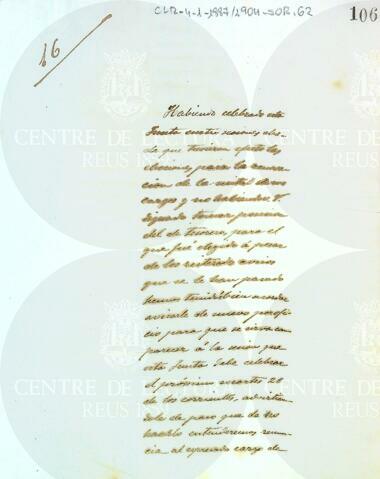 CLR-4-1-1887/1904-SOR.62
106
16
CENTRE DE LECTURA
REUS 1859
Habiendo celebrado esta
Junta cuatro sesiones des-
de que tuvieron efecto las
elecciones para la renova-
cion de la mitad de sus
cargos y no habiendose V.
dignado tomar posesion
del de tesorero, para el
que fué elegido á pesar
de los reiterados avisos
que se le han pasado
hemos tenido á bien acordar
avisarle de nuevo por ofi-
cio para que se sirva com-
parecer á la sesion que
esta Junta debe celebrar
el próximo martes 26
de los corrientes, advirtien-
dole de paso que de no
hacerlo entenderemos renun-
cia al expresado cargo de
CENTRE DE LECTURA
REUS 1859